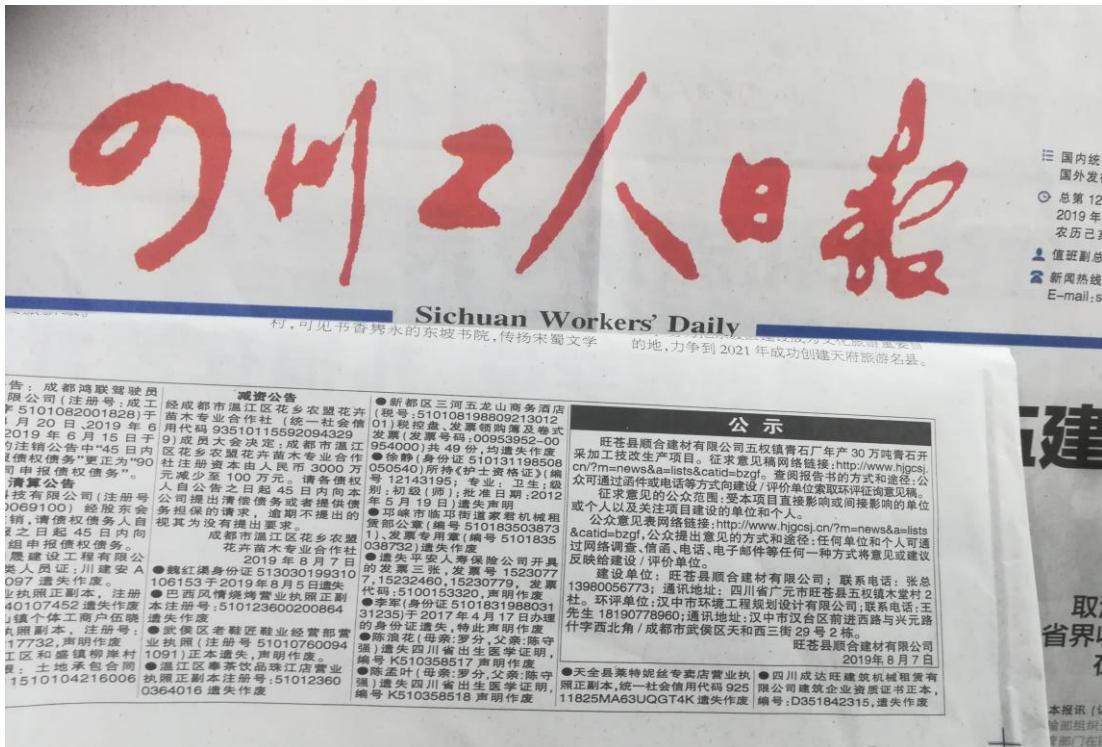 四川工人日报
国内统
国外发行
总第 12
2019 年
农历己亥
值班副总
新闻热线
E-mail:s
Sichuan Workers' Daily
村,可见书香隽永的东坡书院,传扬宋蜀文学
的地,力争到 2021 年成功创建天府旅游名县。
告:成都鸿联驾驶员
限公司(注册号:成工
字 5101082001828)于
月 20 日、2019 年 6
2019 年 6 月 15 日于
的注销公告中“45 日内
报债权债务”更正为“90
司申报债权债务”。
清算公告
科技有限公司(注册号
0069100) 经股东会
销,请债权债务人自
报之日起 45 日内向
组申报债权债务。
晟建设工程有限公
类人员证:川建安 A
097 遗失作废。
业执照正副本,注册
40107452 遗失作废
山镇个体工商户伍晓
执照副本,注册号:
17732,声明作废
江区和盛镇柳岸村
限:土地承包合同
1510104216006
减资公告
经成都市温江区花乡农盟花卉
苗木专业合作社 (统一社会信
用代码 93510115592094329
9)成员大会决定:成都市温江
区花乡农盟花卉苗木专业合作
社注册资本由人民币 3000 万
元减少至 100 万元。请各债权
人自公告之日起 45 日内向本
公司提出清偿债务或者提供债
务担保的请求,逾期不提出的
视其为没有提出要求。
成都市温江区花乡农盟
花卉苗木专业合作社
2019 年 8 月 7 日
●魏红渠身份证 513030199310
106153 于 2019 年 8 月 5 日遗失
●巴西风情烧烤营业执照正副
本注册号:510123600200864
●武侯区老鞋匠鞋业经营部营
业执照(注册号 51010760094
1091)正本遗失,声明作废。
●温江区奉茶饮品珠江店营业
执照正副本注册号:51012360
0364016 遗失作废
●新都区三河五龙山商务酒店
(税号:510108198809213012
01)税控盘、发票领购簿及卷式
发票(发票号码:00953952-00
954000)共 49 份,均遗失作废
●徐静(身份证 510131198508
050540)所持《护士资格证》(编
号 12143195;专业:卫生;级
别:初级(师);批准日期:2012
年 5 月 19 日)遗失声明
●邛崃市临邛街道家君机械租
赁部公章(编号 510183503873
1)、发票专用章(编号 5101835
038732)遗失作废
●遗失平安人寿保险公司开具
的发票三张,发票号 1523077
7,15232460,15230779, 发票
代码:5100153320,声明作废
●李军(身份证 5101831988031
31235)于 2017 年 4 月 17 日办理
的身份证遗失,特此声明作废
●陈浪花(母亲:罗分,父亲:陈守
强)遗失四川省出生医学证明,
编号 K510358517 声明作废
●陈孟叶(母亲:罗分,父亲:陈守
强)遗失四川省出生医学证明,
编号 K510358518 声明作废
公示
旺苍县顺合建材有限公司五权镇青石厂年产 30 万吨青石开
采加工技改生产项目。征求意见稿网络链接:http://www.hjgcsj.
cn/?m=news&a=lists&catid=bzgf。查阅报告书的方式和途径:公
众可通过函件或电话等方式向建设/评价单位索取环评征询意见稿。
征求意见的公众范围:受本项目直接影响或间接影响的单位
或个人以及关注项目建设的单位和个人。
公众意见表网络链接:http://www.hjgcsj.cn/?m=news&a=lists
&catid=bzgf,公众提出意见的方式和途径:任何单位和个人可通
过网络调查、信函、电话、电子邮件等任何一种方式将意见或建议
反映给建设/评价单位。
建设单位:旺苍县顺合建材有限公司;联系电话:张总
13980056773;通讯地址:四川省广元市旺苍县五权镇木堂村 2
社。环评单位:汉中市环境工程规划设计有限公司;联系电话:王
先生 18190778960;通讯地址:汉中市汉台区前进西路与兴元路
什字西北角/成都市武侯区天和西三街 29 号 2 栋。
旺苍县顺合建材有限公司
2019年8月7日
●天全县莱特妮丝专卖店营业执
照正副本,统一社会信用代码 925
11825MA63UQGT4K 遗失作废
●四川成达旺建筑机械租赁有
限公司建筑企业资质证书正本,
编号:D351842315,遗失作废
建
取
省界收
本报讯